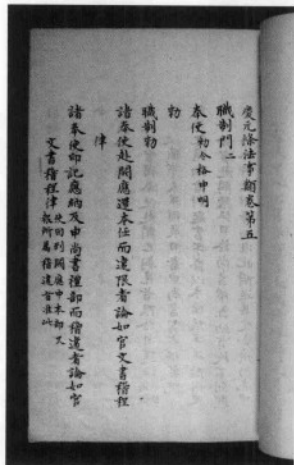 慶元條法事類卷第五
職制門二
奉使 勑令格申明
勑
職制勑
諸奉使赴闕應還本任而違限者論如官文書稽程
律
諸奉使印記應納及申尚書禮部而稽違者論如官
文書稽程律 使回到闕應申本部又
報所屬稽違者准此